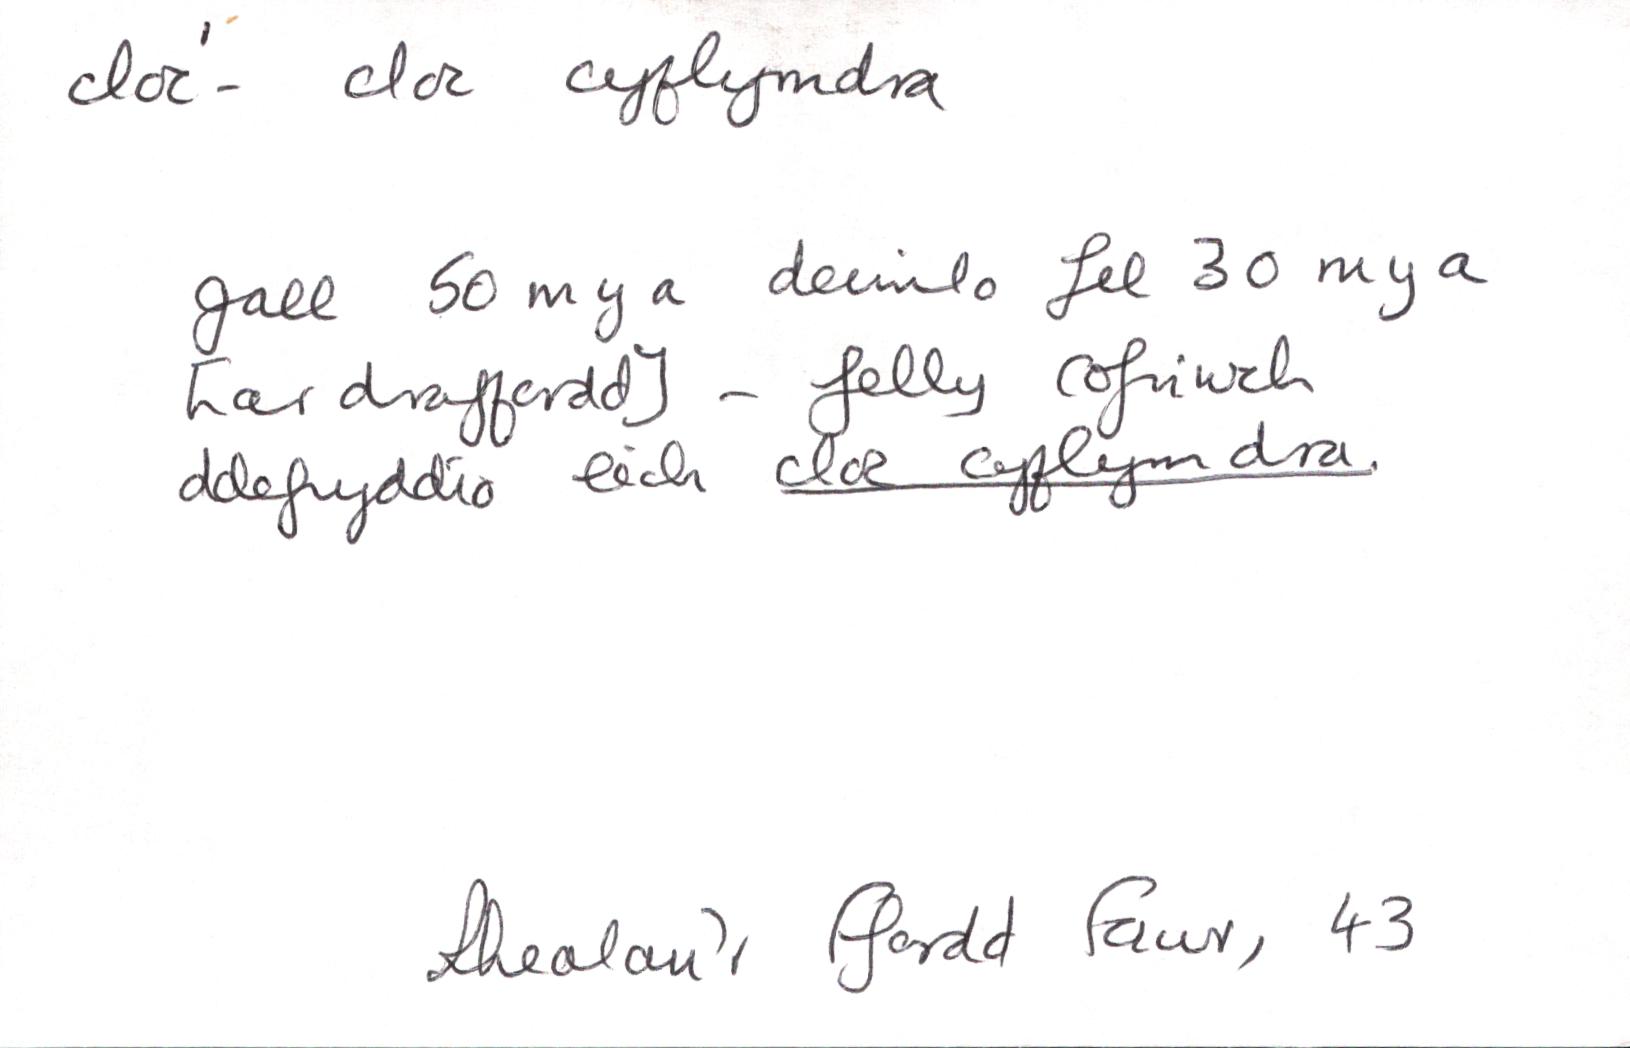 cloc¹ - cloc cyflymdra
gall 50 mya deimlo fel 30 mya
[ar draffordd] - felly cofiwch
ddefnyddio eich cloc cyflymdra.
Rheolau'r Ffordd Fawr, 43